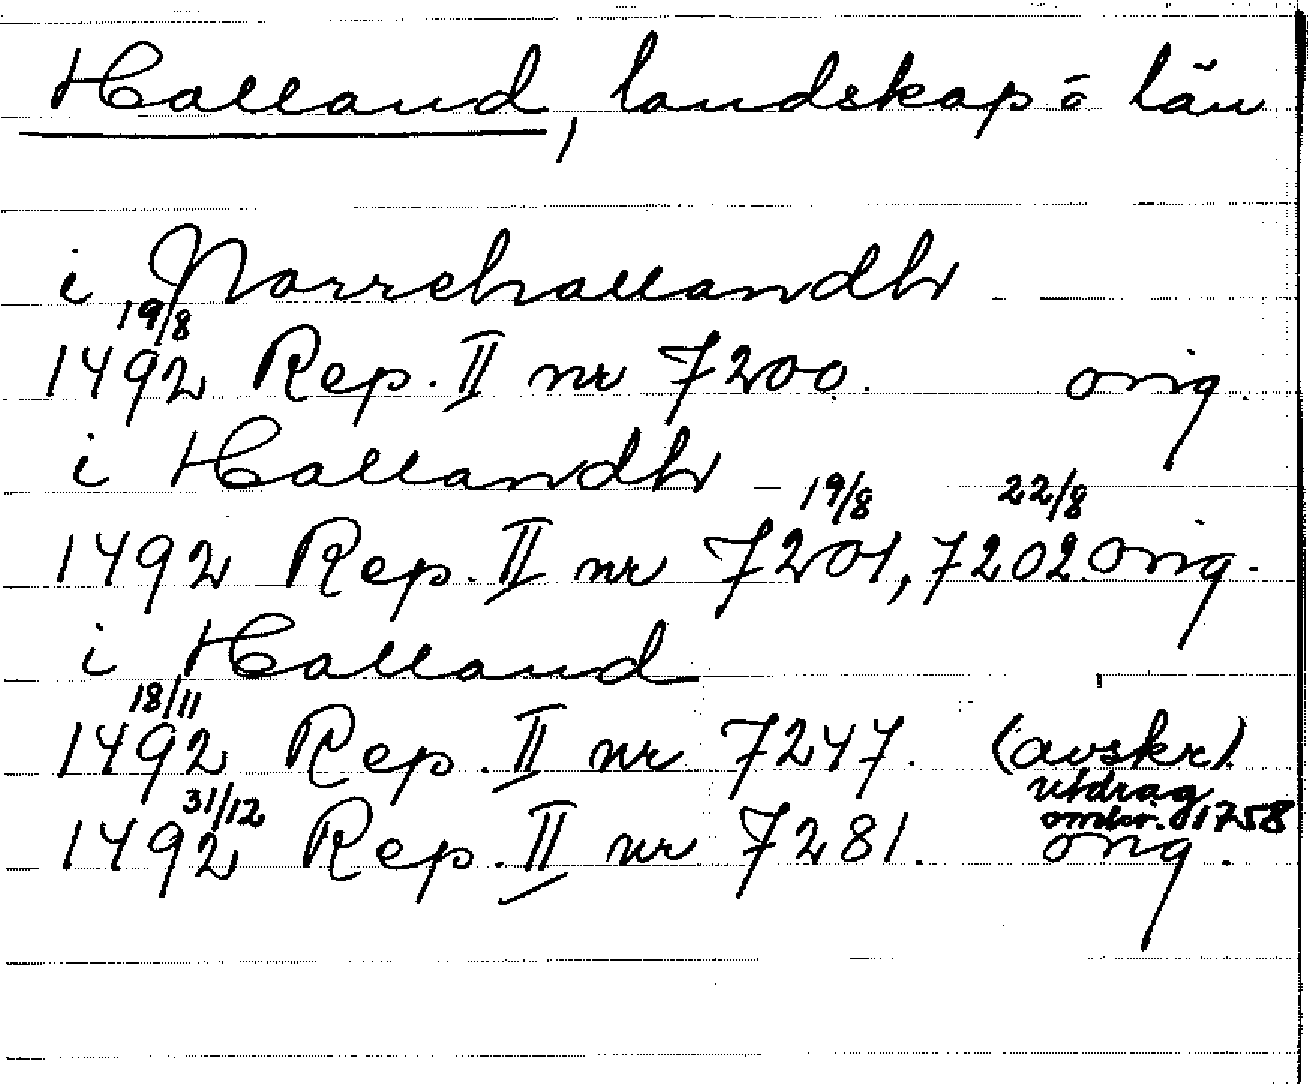 Halland, landskap o. län
i Norrehallandh
19/8
1492 Rep. II nr 7200. orig.
i Hallandh
19/8 22/8
1492 Rep. II nr 7201, 7202 orig.
i Halland
18/11
1492 Rep. II nr 7247. (avskr.)
utdrag
31/12 omkr. 1758
1492 Rep. II nr 7281. orig.